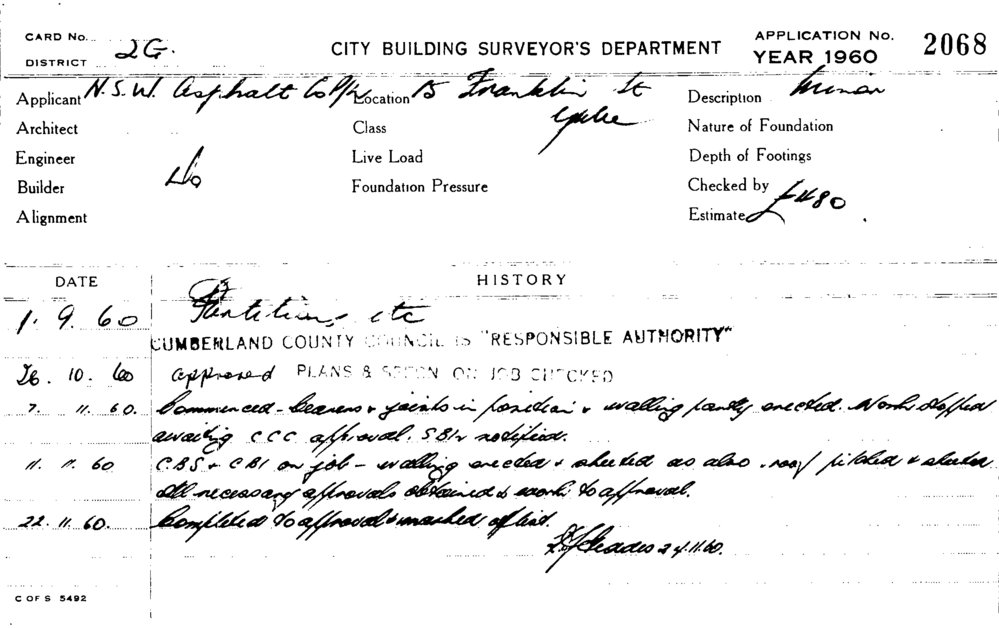 CARD No. CITY BUILDING SURVEYOR'S DEPARTMENT APPLICATION No. 2068
DISTRICT 2G. YEAR 1960
Applicant N.S.W. Asphalt Co P/L Location 15 Franklin St Description Minor
Architect Class Glebe Nature of Foundation
Engineer Live Load Depth of Footings
Builder Do Foundation Pressure Checked by
Alignment Estimate £480
DATE HISTORY
1. 9. 60 Partitions etc
CUMBERLAND COUNTY COUNCIL IS "RESPONSIBLE AUTHORITY"
26. 10. 60 approved PLANS & SPECN ON JOB CHECKED
7. 11. 60. Commenced - bearers & joists in position & walling partly erected. Work stopped
awaiting CCC approval. SBI notified.
11. 11. 60 CBS & CBI on job - walling erected & sheeted as also roof pitched & sheeted
All necessary approvals obtained & work to approval.
22. 11. 60. Completed to approval & marked off list.
24.11.60.
C OF S 5492